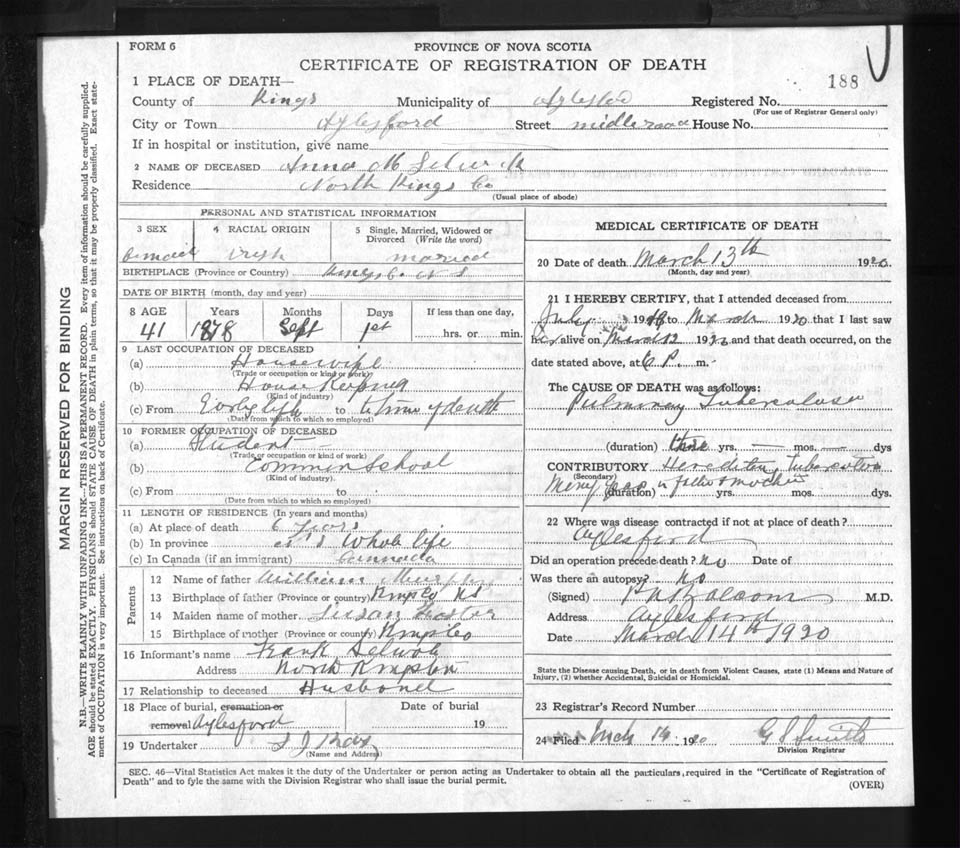 FORM 6
PROVINCE OF NOVA SCOTIA
CERTIFICATE OF REGISTRATION OF DEATH
188
1 PLACE OF DEATH—
County of Kings Municipality of Registered No.
(For use of Registrar General only)
City or Town Aylesford Street House No.
If in hospital or institution, give name
2 NAME OF DECEASED Anna M
Residence North Kings Co
(Usual place of abode)
PERSONAL AND STATISTICAL INFORMATION
3 SEX 4 RACIAL ORIGIN 5 Single, Married, Widowed or Divorced (Write the word)
Irish married
BIRTHPLACE (Province or Country) Kings Co. N S
DATE OF BIRTH (month, day and year)
8 AGE Years Months Days If less than one day,
41 1878 Sept 1st hrs. or min.
9 LAST OCCUPATION OF DECEASED
(a) Housewife
(Trade or occupation or kind of work)
(b) House Keeping
(Kind of industry)
(c) From Early life to time of death
(Date from which to which so employed)
10 FORMER OCCUPATION OF DECEASED
(a) Student
(Trade or occupation or kind of work)
(b) Common School
(Kind of industry).
(c) From to
(Date from which to which so employed)
11 LENGTH OF RESIDENCE (In years and months)
(a) At place of death 6 years
(b) In province Whole life
(c) In Canada (if an immigrant) Cannada
Parents
12 Name of father William Murphy
13 Birthplace of father (Province or country) Kings Co NS
14 Maiden name of mother Susan
15 Birthplace of mother (Province or country) Kings Co
16 Informant's name Frank
Address North Kingston
17 Relationship to deceased Husband
18 Place of burial, cremation or Date of burial
removal Aylesford 19
19 Undertaker
(Name and Address)
MEDICAL CERTIFICATE OF DEATH
20 Date of death March 13th 1920
(Month, day and year)
21 I HEREBY CERTIFY, that I attended deceased from
July 1918 to March 1920 that I last saw
her alive on March 12 1920 and that death occurred, on the
date stated above, at 6 P. m.
The CAUSE OF DEATH was as follows:
Pulminary Tuberculosis
(duration) three yrs. — mos. — dys
CONTRIBUTORY Hereditary Tuberculosis
(Secondary)
in father & mother
(duration) yrs. mos. dys.
22 Where was disease contracted if not at place of death?
Aylesford
Did an operation precede death? No Date of
Was there an autopsy? No
(Signed) M.D.
Address Aylesford
Date March 14th 1920
State the Disease causing Death, or in death from Violent Causes, state (1) Means and Nature of
Injury, (2) whether Accidental, Suicidal or Homicidal.
23 Registrar's Record Number
24 Filed Mch 1920 G S Smith
Division Registrar
SEC. 46—Vital Statistics Act makes it the duty of the Undertaker or person acting as Undertaker to obtain all the particulars, required in the "Certificate of Registration of
Death" and to fyle the same with the Division Registrar who shall issue the burial permit.
(OVER)
MARGIN RESERVED FOR BINDING
N.B.—WRITE PLAINLY WITH UNFADING INK—THIS IS A PERMANENT RECORD. Every item of information should be carefully supplied.
AGE should be stated EXACTLY. PHYSICIANS should STATE CAUSE OF DEATH in plain terms, so that it may be properly classified. Exact statement
of OCCUPATION is very important. See instructions on back of Certificate.